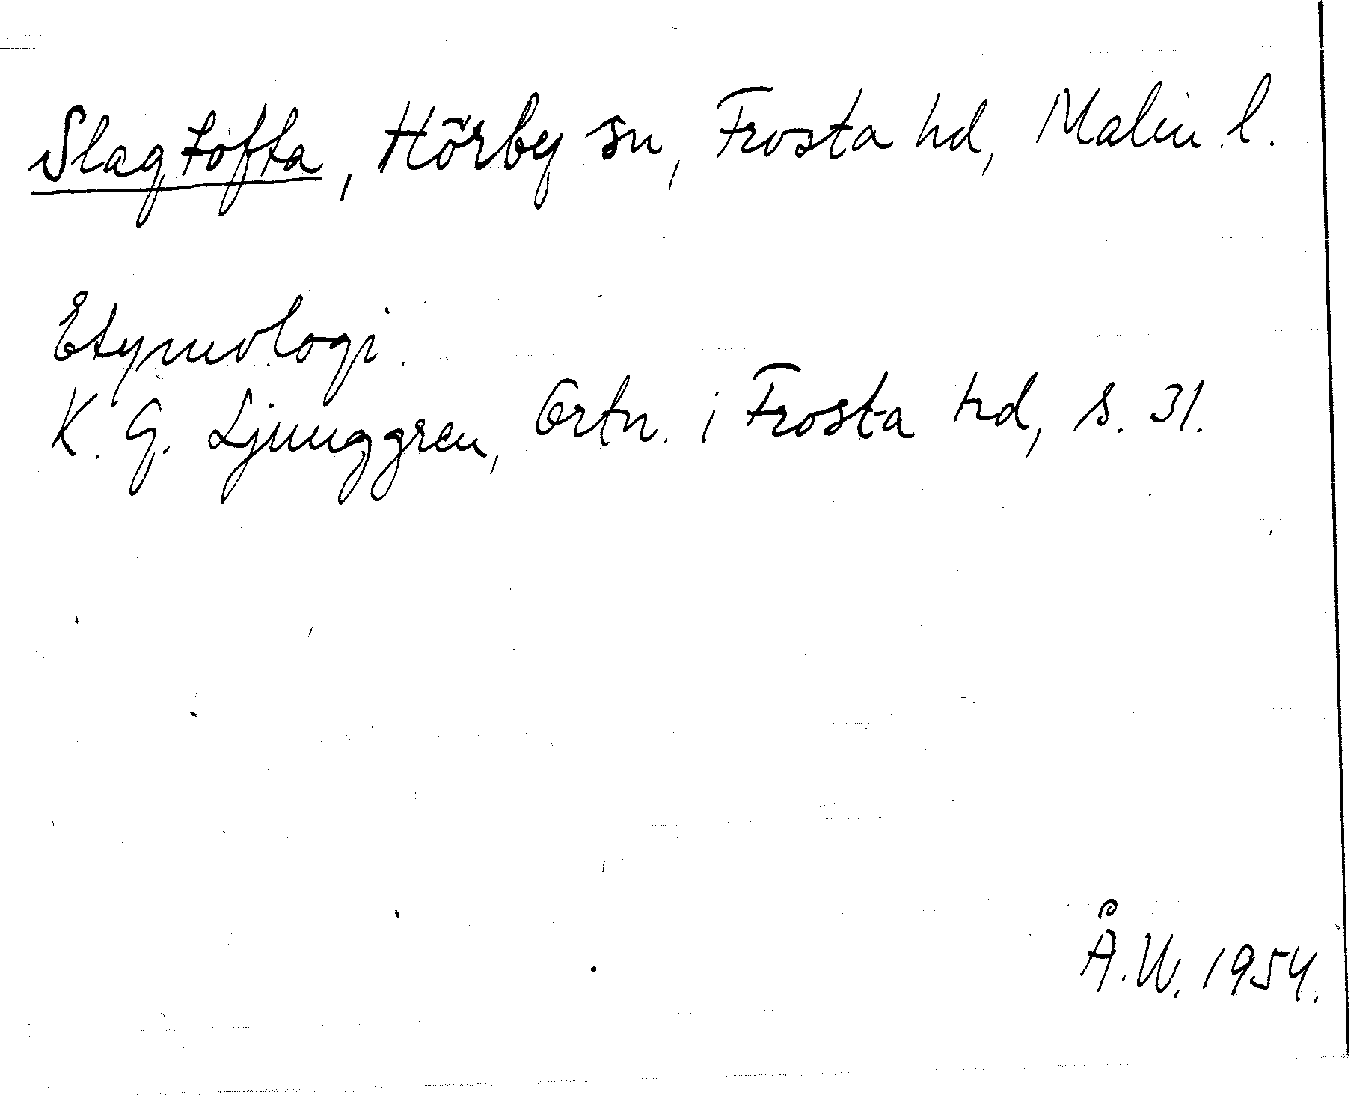 Slagtofta, Hörby sn, Frosta hd, Malm l.
Etymologi.
K. G. Ljunggren, Ortn. i Frosta hd, s. 31.
Å.W. 1954.